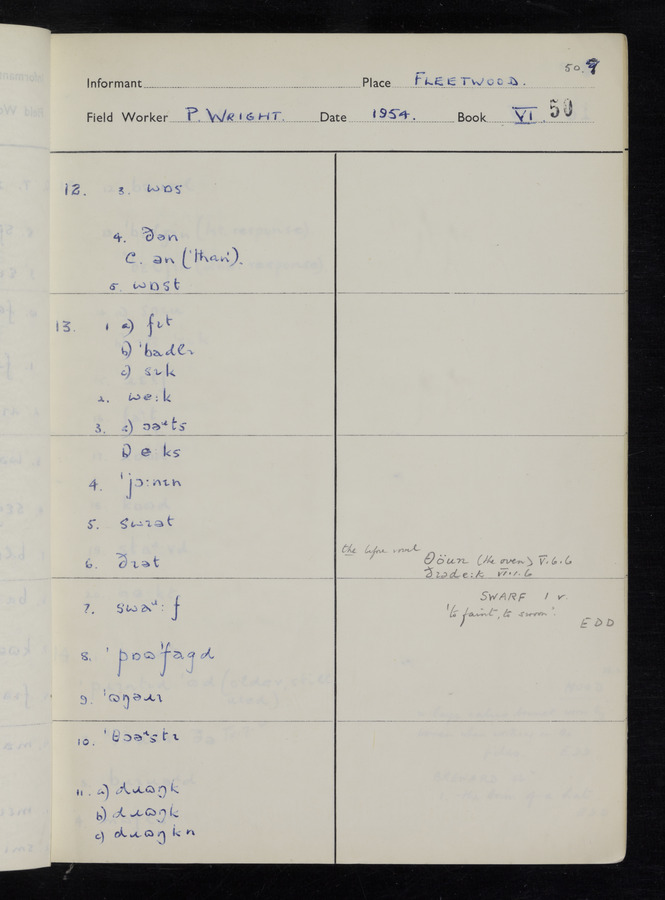 50.9
Informant Place FLEETWOOD.
Field Worker P. WRIGHT. Date 1954. Book VI 50
12. 3. wɒs
4. ðən
C. ən ('than').
5. wɒst
13. 1 a) fɪt
b) 'badlɪ
c) sɪk
2. we:k
3. a)
b) e:ks
4. 'jɔ:nɪn
5. swɪət
6. ðɪət
the before vowel
(the oven) V.6.6
VI.1.6
7.
SWARF 1 v.
'to faint, to swoon'.
EDD
8.
9.
10.
11. a) dɹʊŋk
b) dɹʊŋk
c) dɹʊŋkn